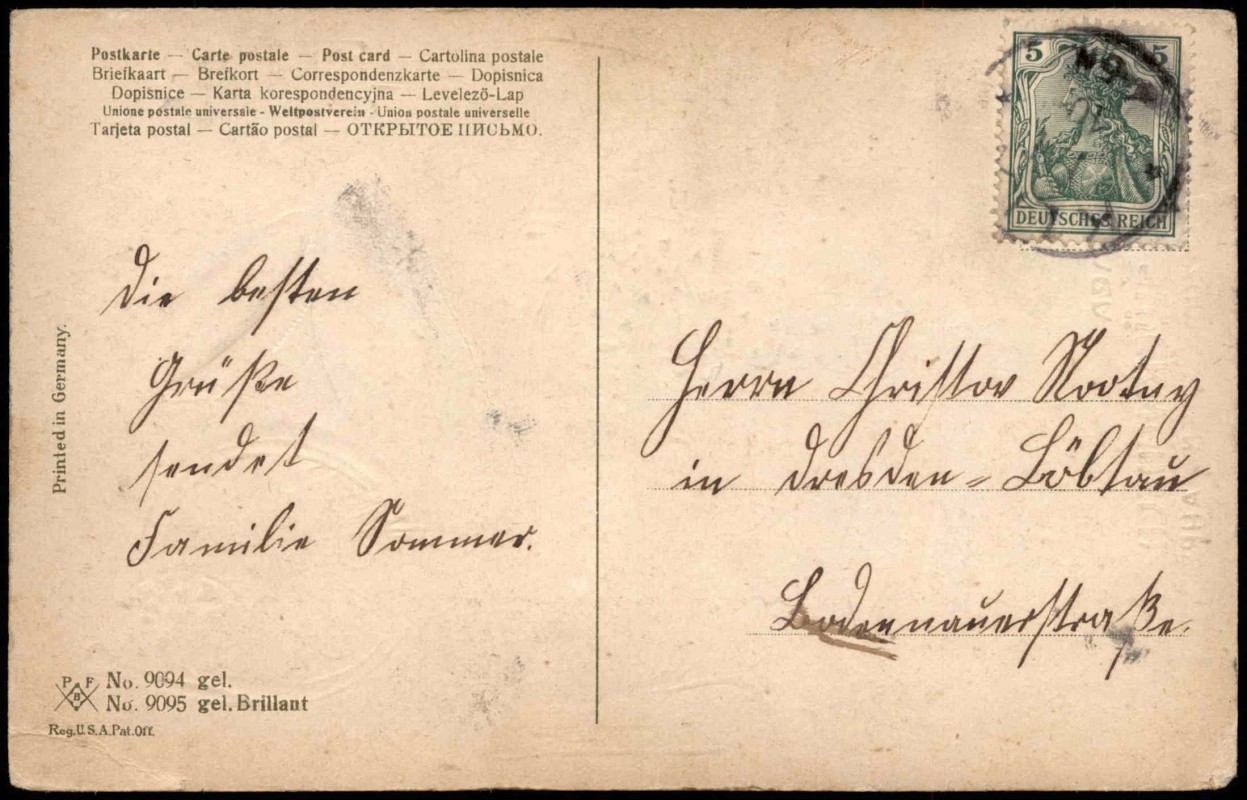 Postkarte — Carte postale — Post card — Cartolina postale
Briefkaart — Brefkort — Correspondenzkarte — Dopisnica
Dopisnice — Karta korespondencyjna — Levelező-Lap
Unione postale universale - Weltpostverein - Union postale universelle
Tarjeta postal — Cartão postal — ОТКРЫТОЕ ПИСЬМО.
5 5
DEUTSCHES REICH
Die besten
Grüße
sendet
Familie Sommer.
Printed in Germany.
Herrn Christov
in Dresden-Löbtau
P F
B
No. 9094 gel.
No. 9095 gel. Brillant
Reg. U.S.A. Pat. Off.